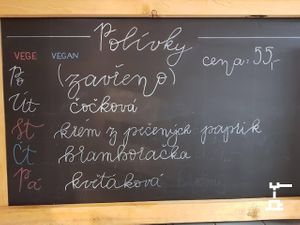 Polívky
VEGE VEGAN cena: 55,-
Po (zavřeno)
Út čočková
St krém z pečených paprik
Čt bramboračka
Pá květáková